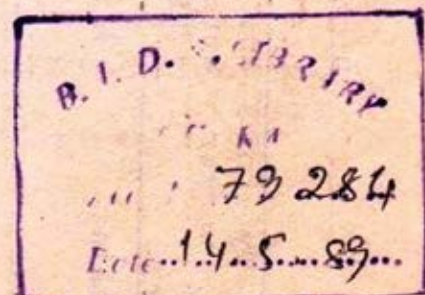 B. I. D. S. LIBRARY
79 284
Date 14.5.89